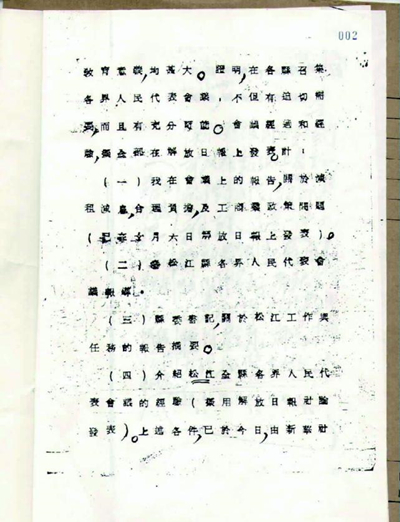 002
教育意義,均甚大。證明,在各縣召集
各界人民代表會議,不但有迫切需
要,而且有充分可能。會議經過和經
驗,擬全部在解放日報上發表計:
(一)我在會議上的報告,關於減
租減息,合理負擔,及工商業政策問題
(已在十月六日解放日報上發表)。
(二)松江縣各界人民代表會
議報導。
(三)縣委書記,關於松江工作與
任務的報告摘要。
(四)介紹松江全縣各界人民代
表會議的經驗(擬用解放日報社論
發表)。上述各件,已於今日,由新華社